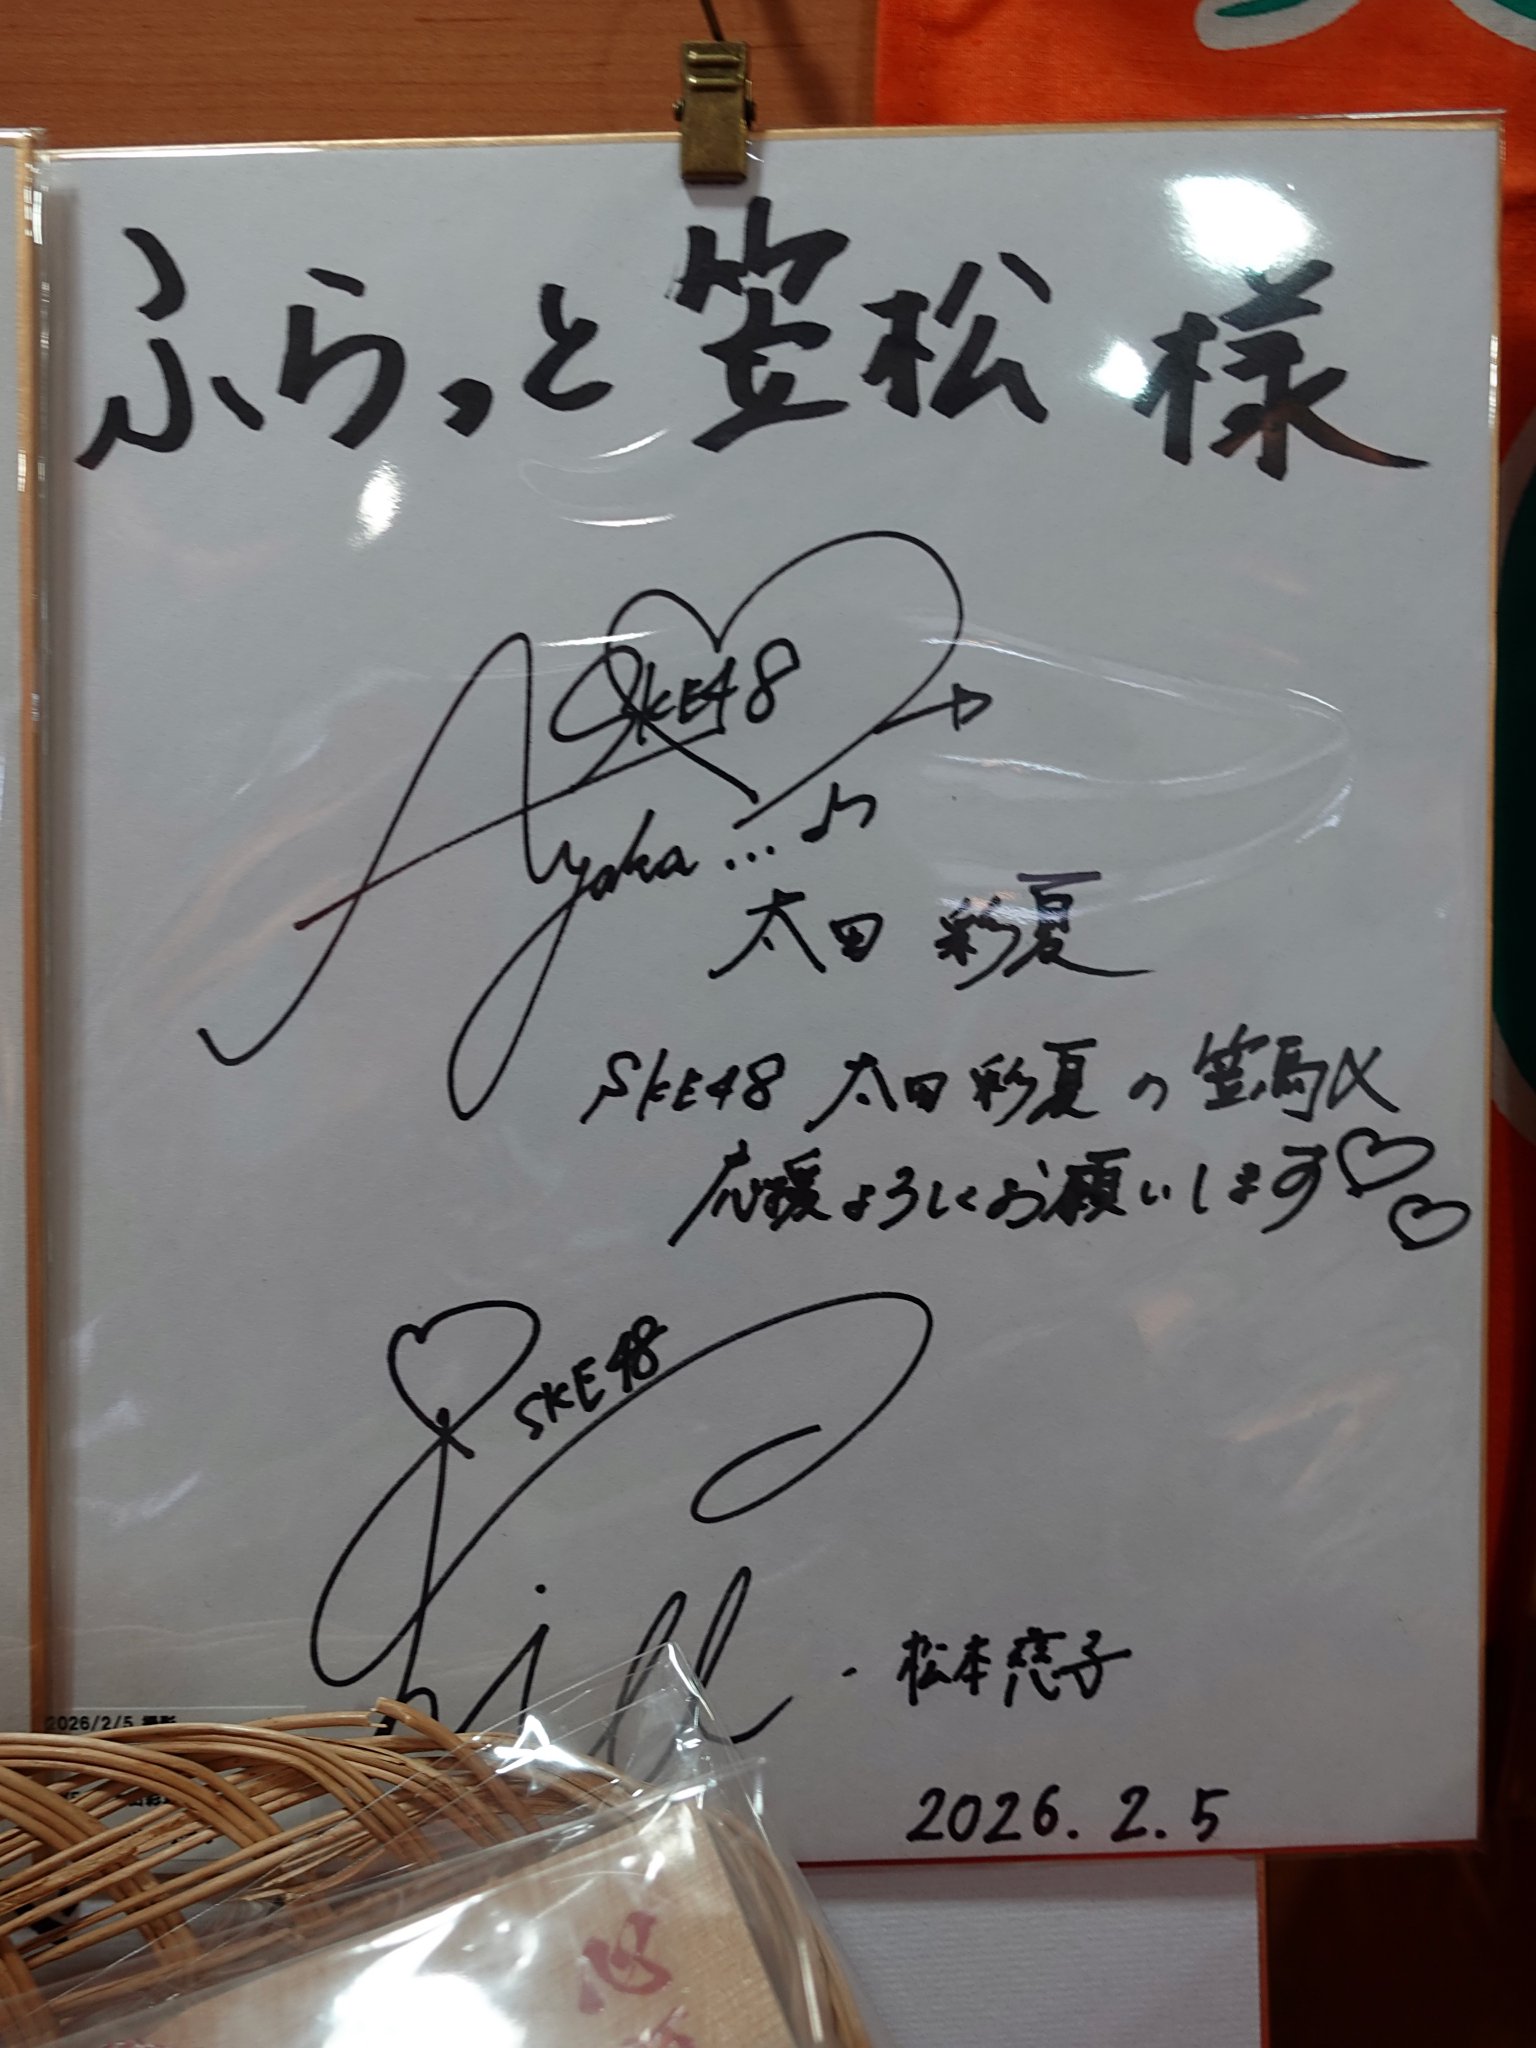 ふらっと笠松 様
SKE48
Ayaka...♪
太田 彩夏
SKE48 太田彩夏の笠馬〆
応援よろしくお願いします♡♡
SKE48
松本慈子
2026.2.5
2026/2/5 撮影
心